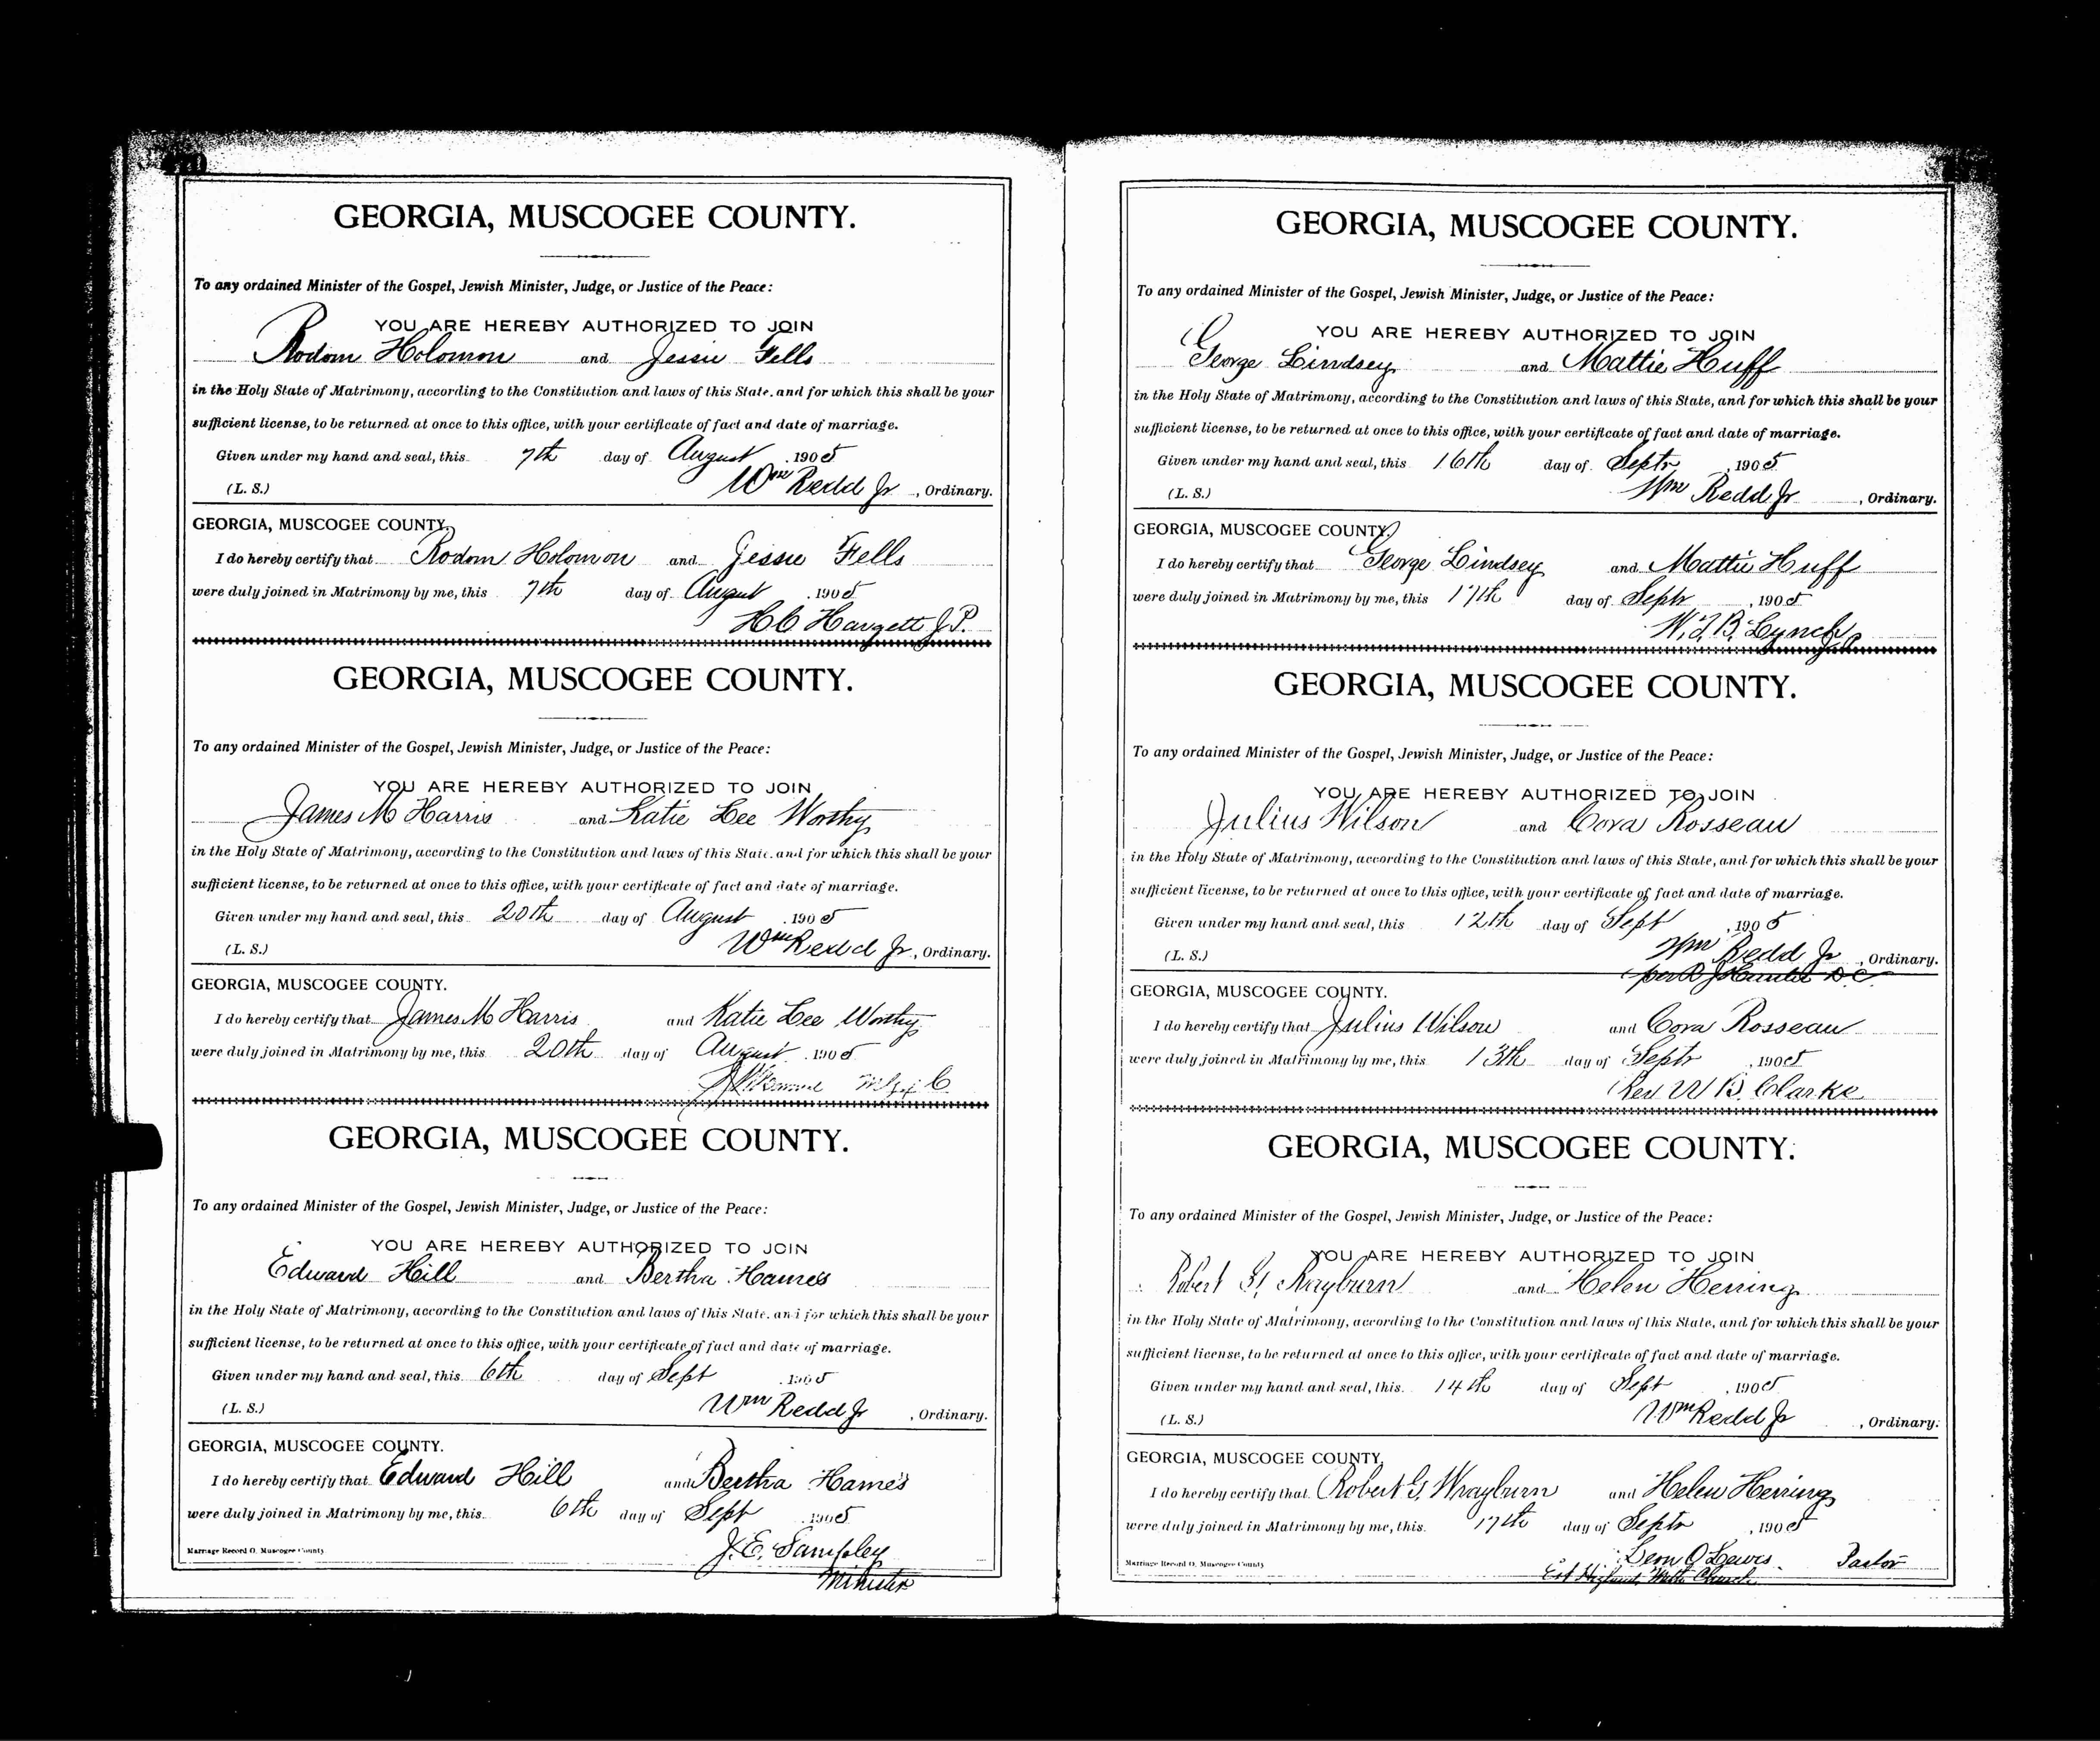 GEORGIA, MUSCOGEE COUNTY.
To any ordained Minister of the Gospel, Jewish Minister, Judge, or Justice of the Peace:
YOU ARE HEREBY AUTHORIZED TO JOIN
Rodom Holomon and Jessie Fells
in the Holy State of Matrimony, according to the Constitution and laws of this State, and for which this shall be your
sufficient license, to be returned at once to this office, with your certificate of fact and date of marriage.
Given under my hand and seal, this 7th day of August, 1905
(L. S.) Wm Redd Jr, Ordinary.
GEORGIA, MUSCOGEE COUNTY.
I do hereby certify that Rodom Holomon and Jessie Fells
were duly joined in Matrimony by me, this 7th day of August, 1905
H C Hargett J P.
GEORGIA, MUSCOGEE COUNTY.
To any ordained Minister of the Gospel, Jewish Minister, Judge, or Justice of the Peace:
YOU ARE HEREBY AUTHORIZED TO JOIN
James M Harris and Katie Lee Worthy
in the Holy State of Matrimony, according to the Constitution and laws of this State, and for which this shall be your
sufficient license, to be returned at once to this office, with your certificate of fact and date of marriage.
Given under my hand and seal, this 20th day of August, 1905
(L. S.) Wm Redd Jr, Ordinary.
GEORGIA, MUSCOGEE COUNTY.
I do hereby certify that James M Harris and Katie Lee Worthy
were duly joined in Matrimony by me, this 20th day of August, 1905
GEORGIA, MUSCOGEE COUNTY.
To any ordained Minister of the Gospel, Jewish Minister, Judge, or Justice of the Peace:
YOU ARE HEREBY AUTHORIZED TO JOIN
Edward Hill and Bertha Hames
in the Holy State of Matrimony, according to the Constitution and laws of this State, and for which this shall be your
sufficient license, to be returned at once to this office, with your certificate of fact and date of marriage.
Given under my hand and seal, this 6th day of Sept, 1905
(L. S.) Wm Redd Jr, Ordinary.
GEORGIA, MUSCOGEE COUNTY.
I do hereby certify that Edward Hill and Bertha Hames
were duly joined in Matrimony by me, this 6th day of Sept, 1905
J. E. Sampley
Minister
Marriage Record O, Muscogee County
GEORGIA, MUSCOGEE COUNTY.
To any ordained Minister of the Gospel, Jewish Minister, Judge, or Justice of the Peace:
YOU ARE HEREBY AUTHORIZED TO JOIN
George Lindsey and Mattie Huff
in the Holy State of Matrimony, according to the Constitution and laws of this State, and for which this shall be your
sufficient license, to be returned at once to this office, with your certificate of fact and date of marriage.
Given under my hand and seal, this 16th day of Septr, 1905
(L. S.) Wm Redd Jr, Ordinary.
GEORGIA, MUSCOGEE COUNTY.
I do hereby certify that George Lindsey and Mattie Huff
were duly joined in Matrimony by me, this 17th day of Septr, 1905
Lynch
GEORGIA, MUSCOGEE COUNTY.
To any ordained Minister of the Gospel, Jewish Minister, Judge, or Justice of the Peace:
YOU ARE HEREBY AUTHORIZED TO JOIN
Julius Wilson and Cora Rosseau
in the Holy State of Matrimony, according to the Constitution and laws of this State, and for which this shall be your
sufficient license, to be returned at once to this office, with your certificate of fact and date of marriage.
Given under my hand and seal, this 12th day of Sept, 1905
(L. S.) Wm Redd Jr, Ordinary.
per R J Hunter D.C.
GEORGIA, MUSCOGEE COUNTY.
I do hereby certify that Julius Wilson and Cora Rosseau
were duly joined in Matrimony by me, this 13th day of Septr, 1905
Rev W B. Clarke
GEORGIA, MUSCOGEE COUNTY.
To any ordained Minister of the Gospel, Jewish Minister, Judge, or Justice of the Peace:
YOU ARE HEREBY AUTHORIZED TO JOIN
Robert G. Rayburn and Helen Herring
in the Holy State of Matrimony, according to the Constitution and laws of this State, and for which this shall be your
sufficient license, to be returned at once to this office, with your certificate of fact and date of marriage.
Given under my hand and seal, this 14th day of Sept, 1905
(L. S.) Wm Redd Jr, Ordinary.
GEORGIA, MUSCOGEE COUNTY.
I do hereby certify that Robert G. Wrayburn and Helen Herring
were duly joined in Matrimony by me, this 17th day of Septr, 1905
Leon O Lewis Pastor
Church
Marriage Record O, Muscogee County